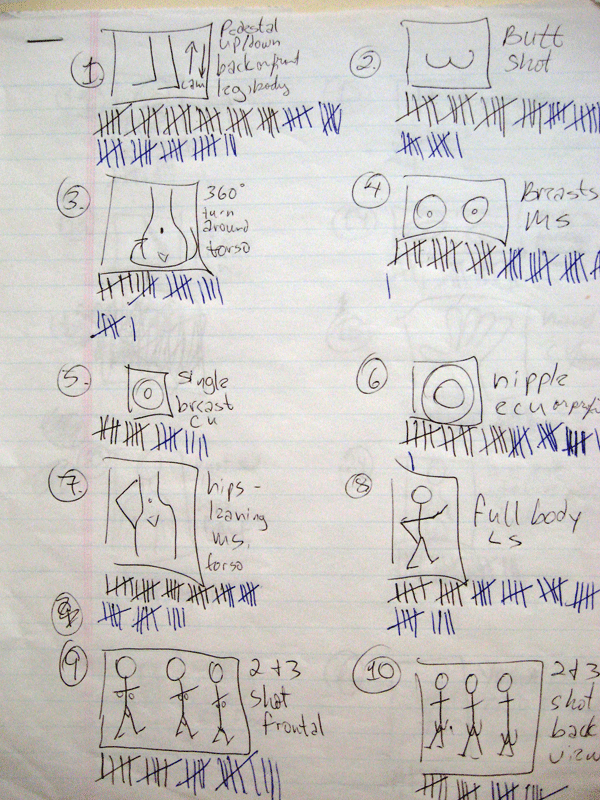 1. Pedestal
up/down
back or front
legs/body
cam
2. Butt
Shot
3. 360°
turn
around
torso
4 Breasts
MS
5. Single
breast
CU
6 nipple
ecu or
7. hips -
leaning
MS,
torso
8 full body
LS
9 2 + 3
shot
frontal
10 2 + 3
shot
back
view